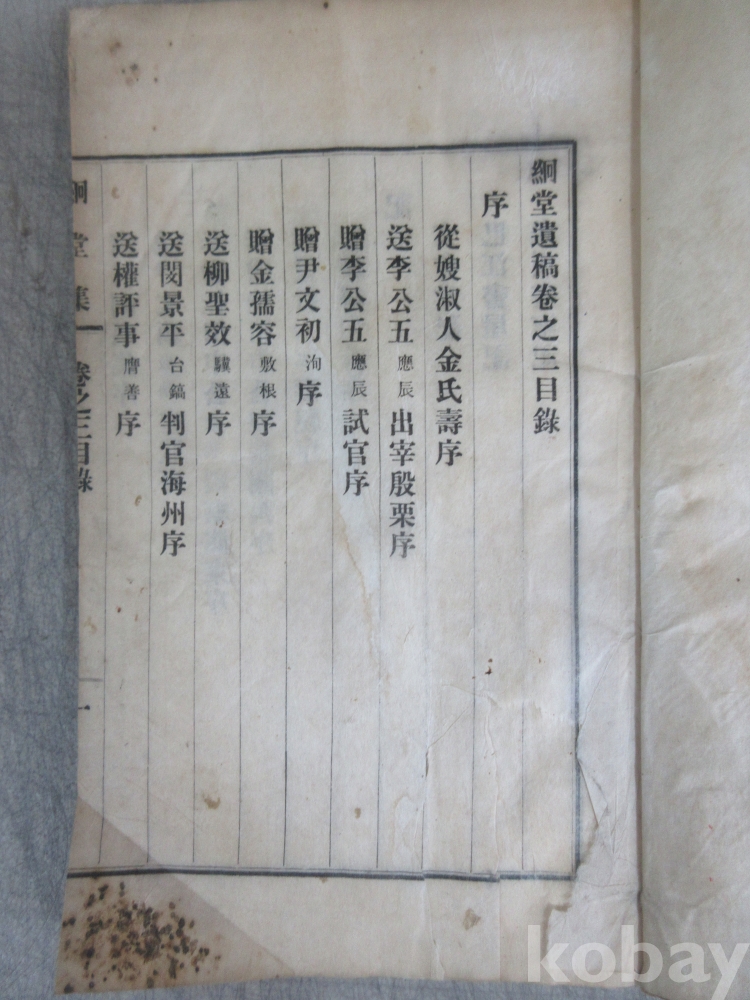 絅堂遺稿卷之三目錄
序
從嫂淑人金氏壽序
送李公五應辰出宰殷栗序
贈李公五應辰試官序
贈尹文初洵序
贈金孺容敷根序
送柳聖效驥遠序
送閔景平台鎬判官海州序
送權評事膺善序
絅堂集 卷之三目錄 一
kobay